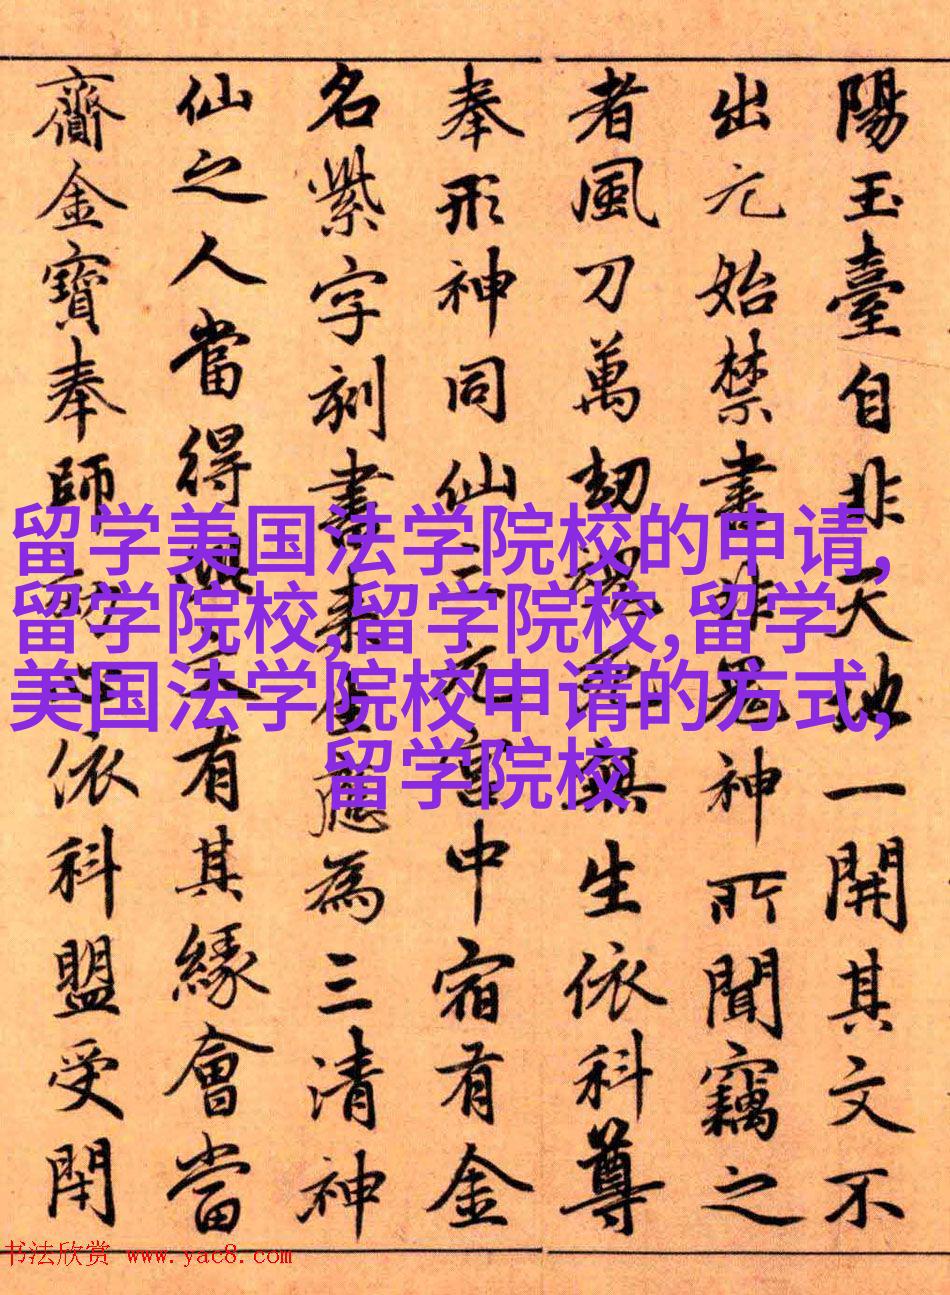 陽玉臺自非天地一開其文不
出元始禁書非鬼神所聞竊之
者風刀萬劫無生依科尊
奉形神同仙三元宮中宿有金
名紫字刻書來生應為三清神
仙之人當得此文有其緣會當
齎金寶奉師効心依科盟受閇
留学美国法学院校的申请,
留学院校,留学院校,留学
美国法学院校申请的方式,
留学院校
书法欣赏 www.yac8.com